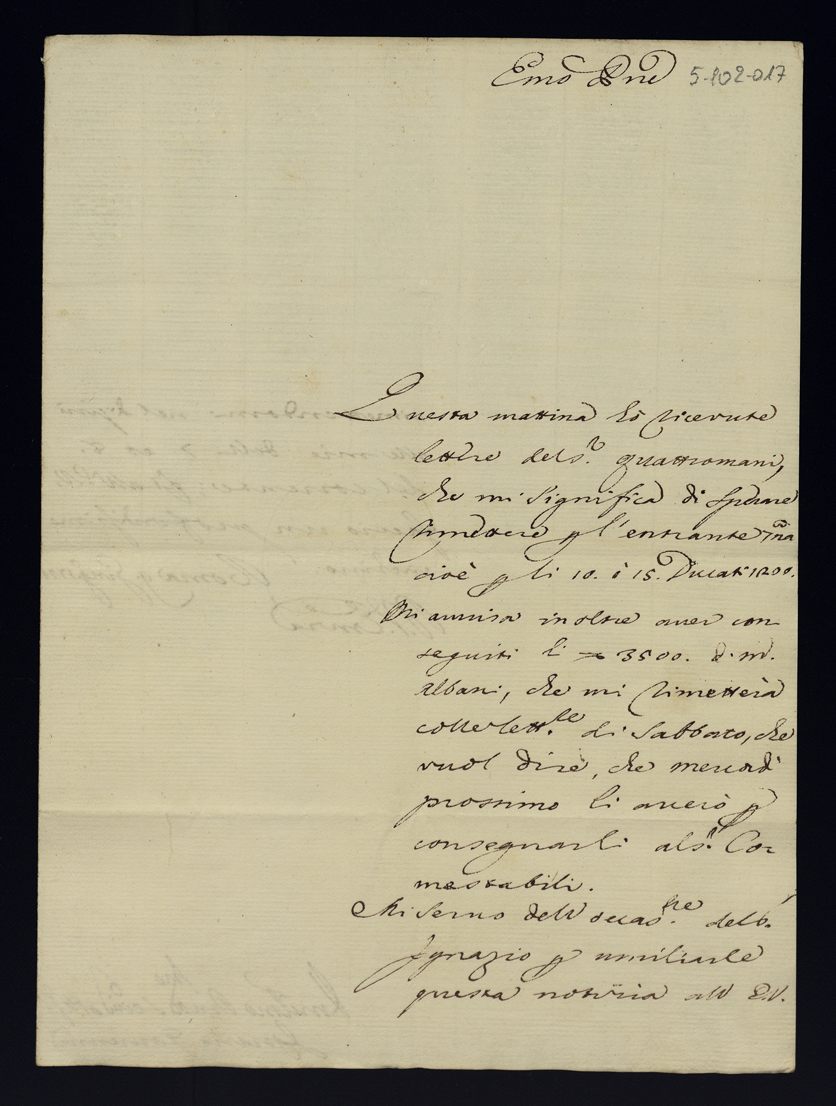 Emõ Pne 5-102-017
Questa mattina hò ricevute
lettere del S.r Quattromani,
che mi significa di sperare
rimettere p l'entrante
cioè p li 10. ò 15. Ducati 1200.
Mi avvisa inoltre aver con-
seguiti li 3500. di m.
Albani, che mi rimetterà
colle lett.re di Sabbato, che
vuol dire, che mercordì
prossimo li averò p
consegnarli al S.r Co-
mestabili.
Mi servo dell' occas.ne del P.
Ignazio p umiliarle
questa notizia all' E.V.